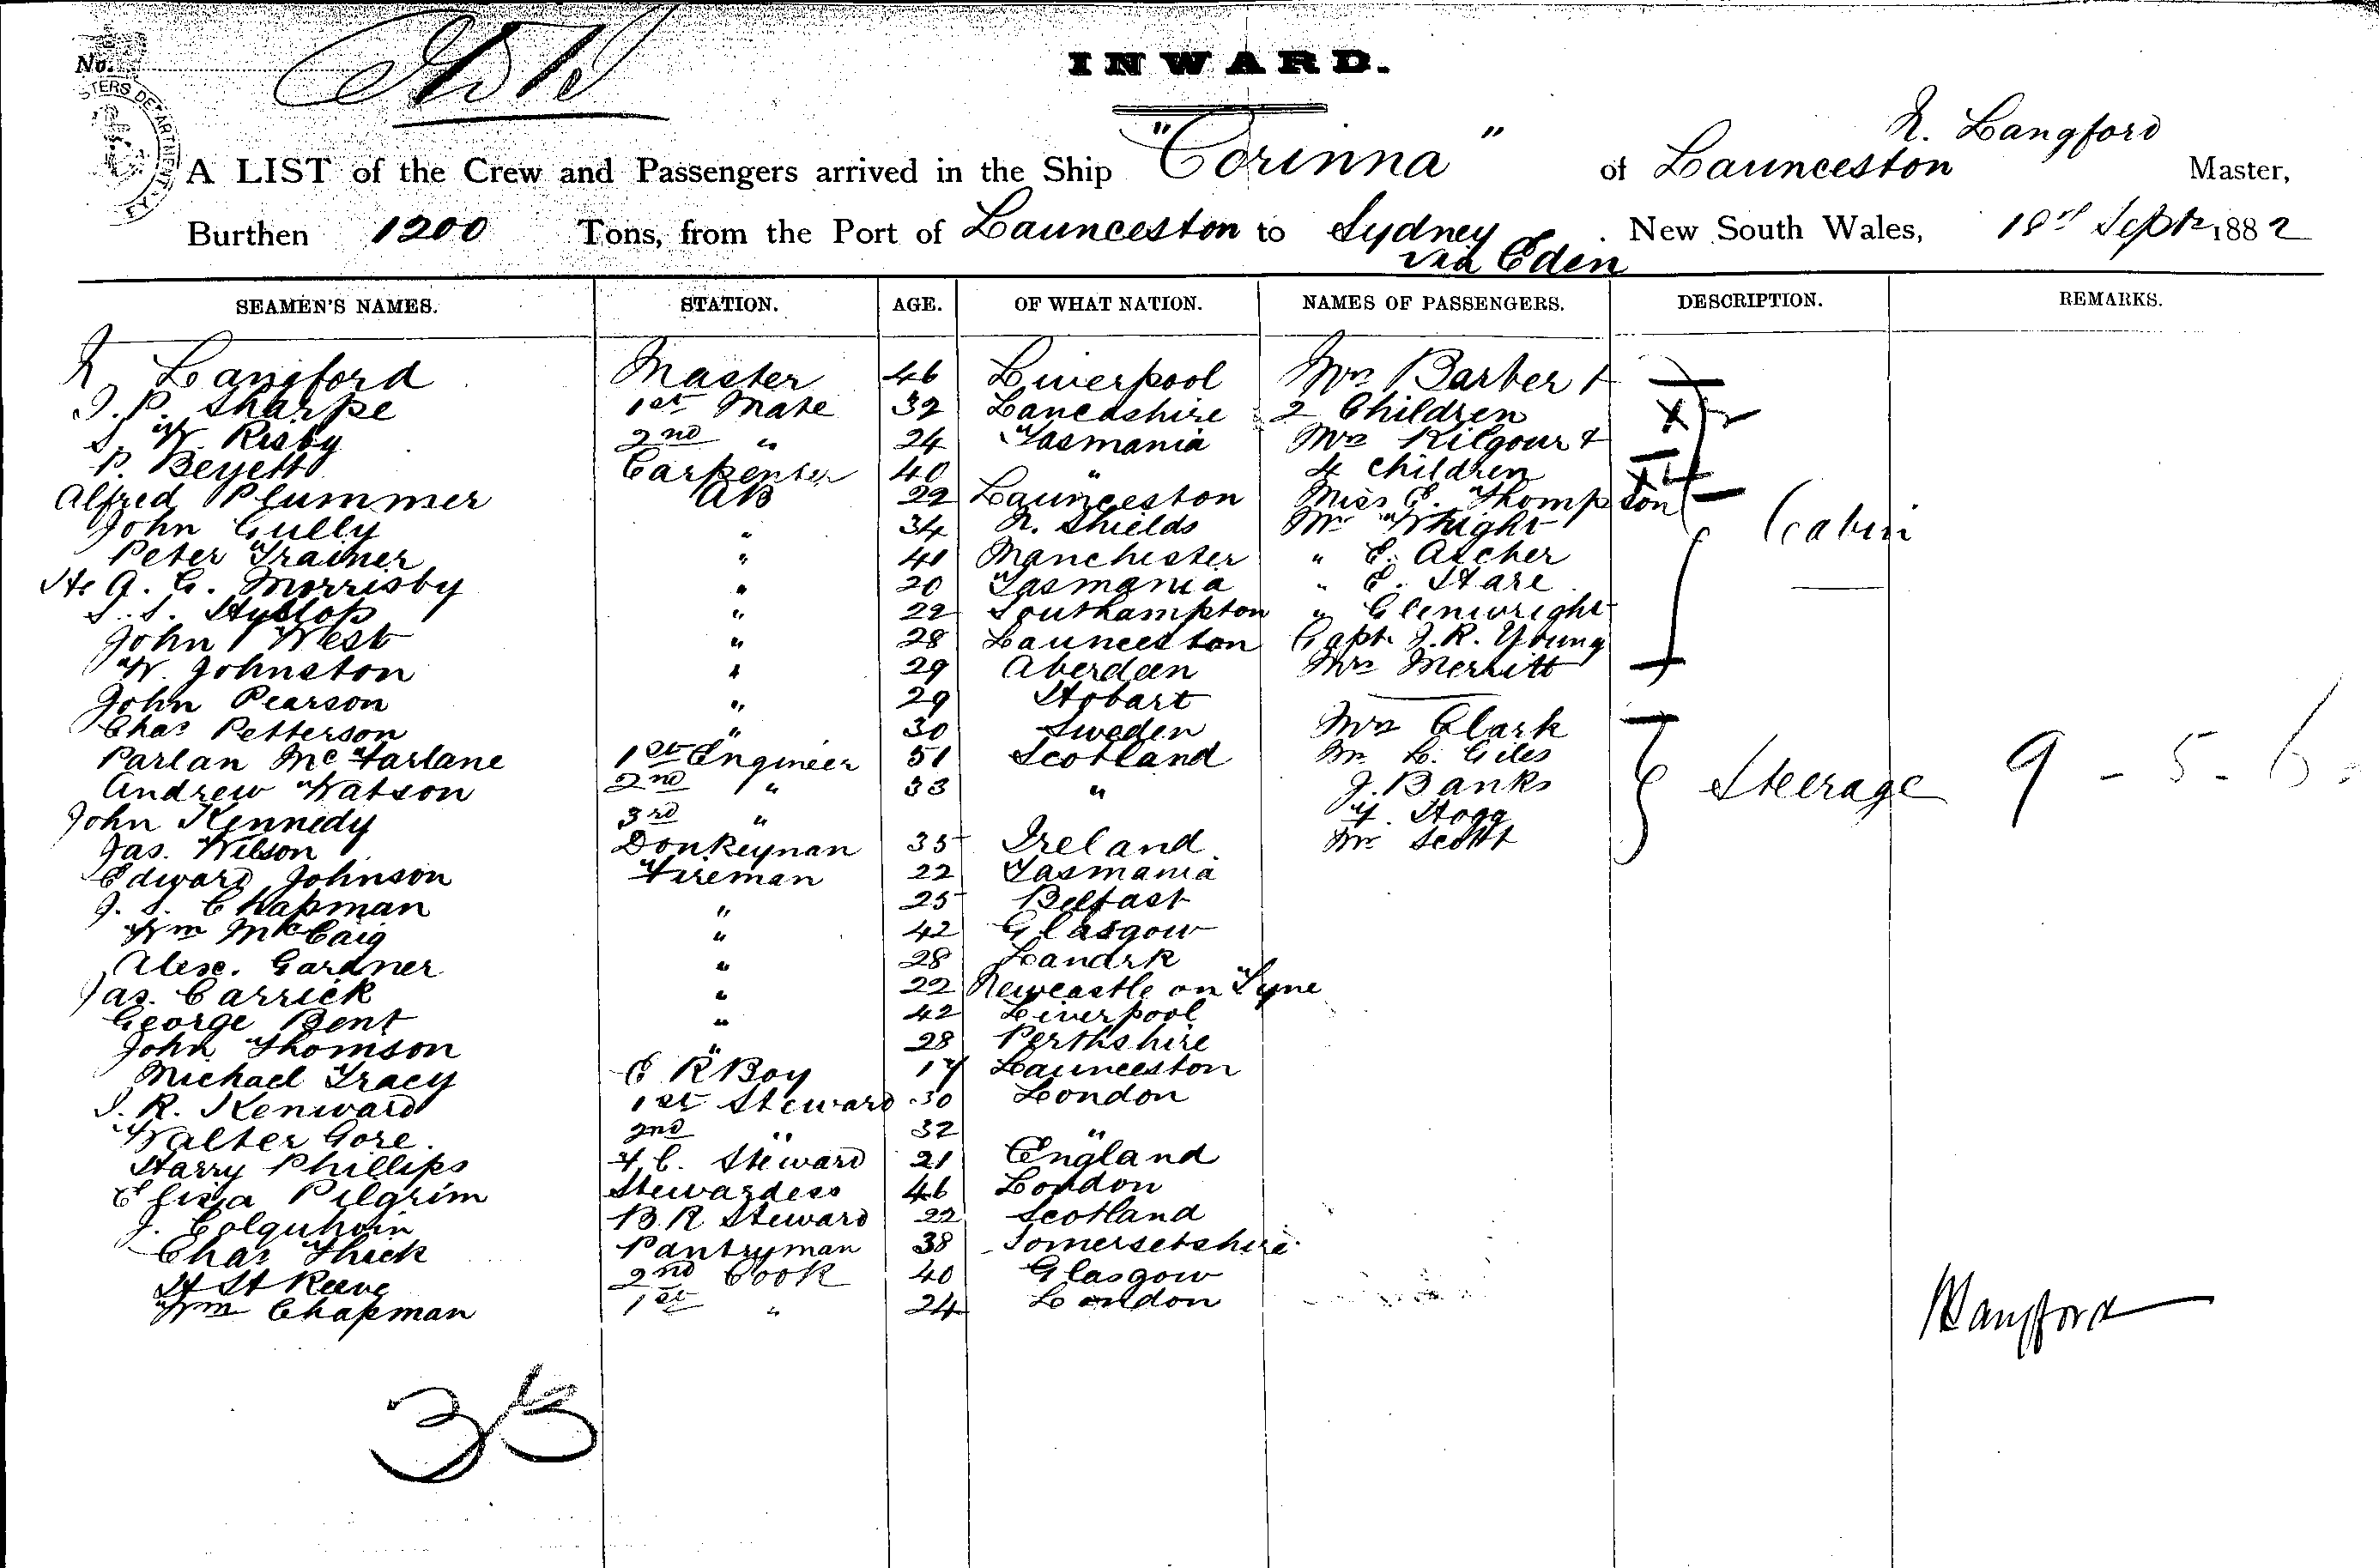 No.
INWARD.
Langford
A LIST of the Crew and Passengers arrived in the Ship "Corinna" of Launceston Master,
Burthen 1200 Tons, from the Port of Launceston to Sydney New South Wales, Sept 1882
via Eden
SEAMEN'S NAMES. STATION. AGE. OF WHAT NATION. NAMES OF PASSENGERS. DESCRIPTION. REMARKS.
Langford Master 46 Liverpool Mrs Barber +
Sharpe 1st Mate 32 Lancashire 2 Children
W. Risby 2nd " 24 Tasmania Mrs Kilgour +
P. Beyett Carpenter 40 " 4 children
Alfred Plummer AB 22 Launceston Miss E. Thompson
John Gully " 34 N. Shields Mr Wright Cabin
Peter Trainer " 41 Manchester " E. Ascher
H. A. G. Morrisby " 20 Tasmania " E. Hare
S. S. Hyslop " 22 Southampton " Glenwright
John West " 28 Launceston Capt. J. R. Young
W. Johnston " 29 Aberdeen Mrs Merritt
John Pearson " 29 Hobart
Chas Petterson " 30 Sweden Mrs Clark
Parlan McFarlane 1st Engineer 51 Scotland Mr L. Giles
Andrew Watson 2nd " 33 " J. Banks Steerage 9 - 5 - 6.
John Kennedy 3rd " Hogg
Jas. Wilson Donkeyman 35 Ireland Mr Scott
Edward Johnson Fireman 22 Tasmania
J. S. Chapman " 25 Belfast
Wm McCaig " 42 Glasgow
Alex. Gardner " 28 Landrk
Jas. Carrick " 22 Newcastle on Tyne
George Bent " 42 Liverpool
John Thomson " 28 Perthshire
Michael Tracy E R Boy 17 Launceston
R. Kenward 1st Steward 30 London
Walter Gore. 2nd " 32 "
Harry Phillips F. C. Steward 21 England
Eliza Pilgrim Stewardess 46 London
J. Colquhoin B. R Steward 22 Scotland
Chas Thick Pantryman 38 Somersetshire
H St Reeve 2nd Cook 40 Glasgow
Wm Chapman 1st " 24 London
Langford